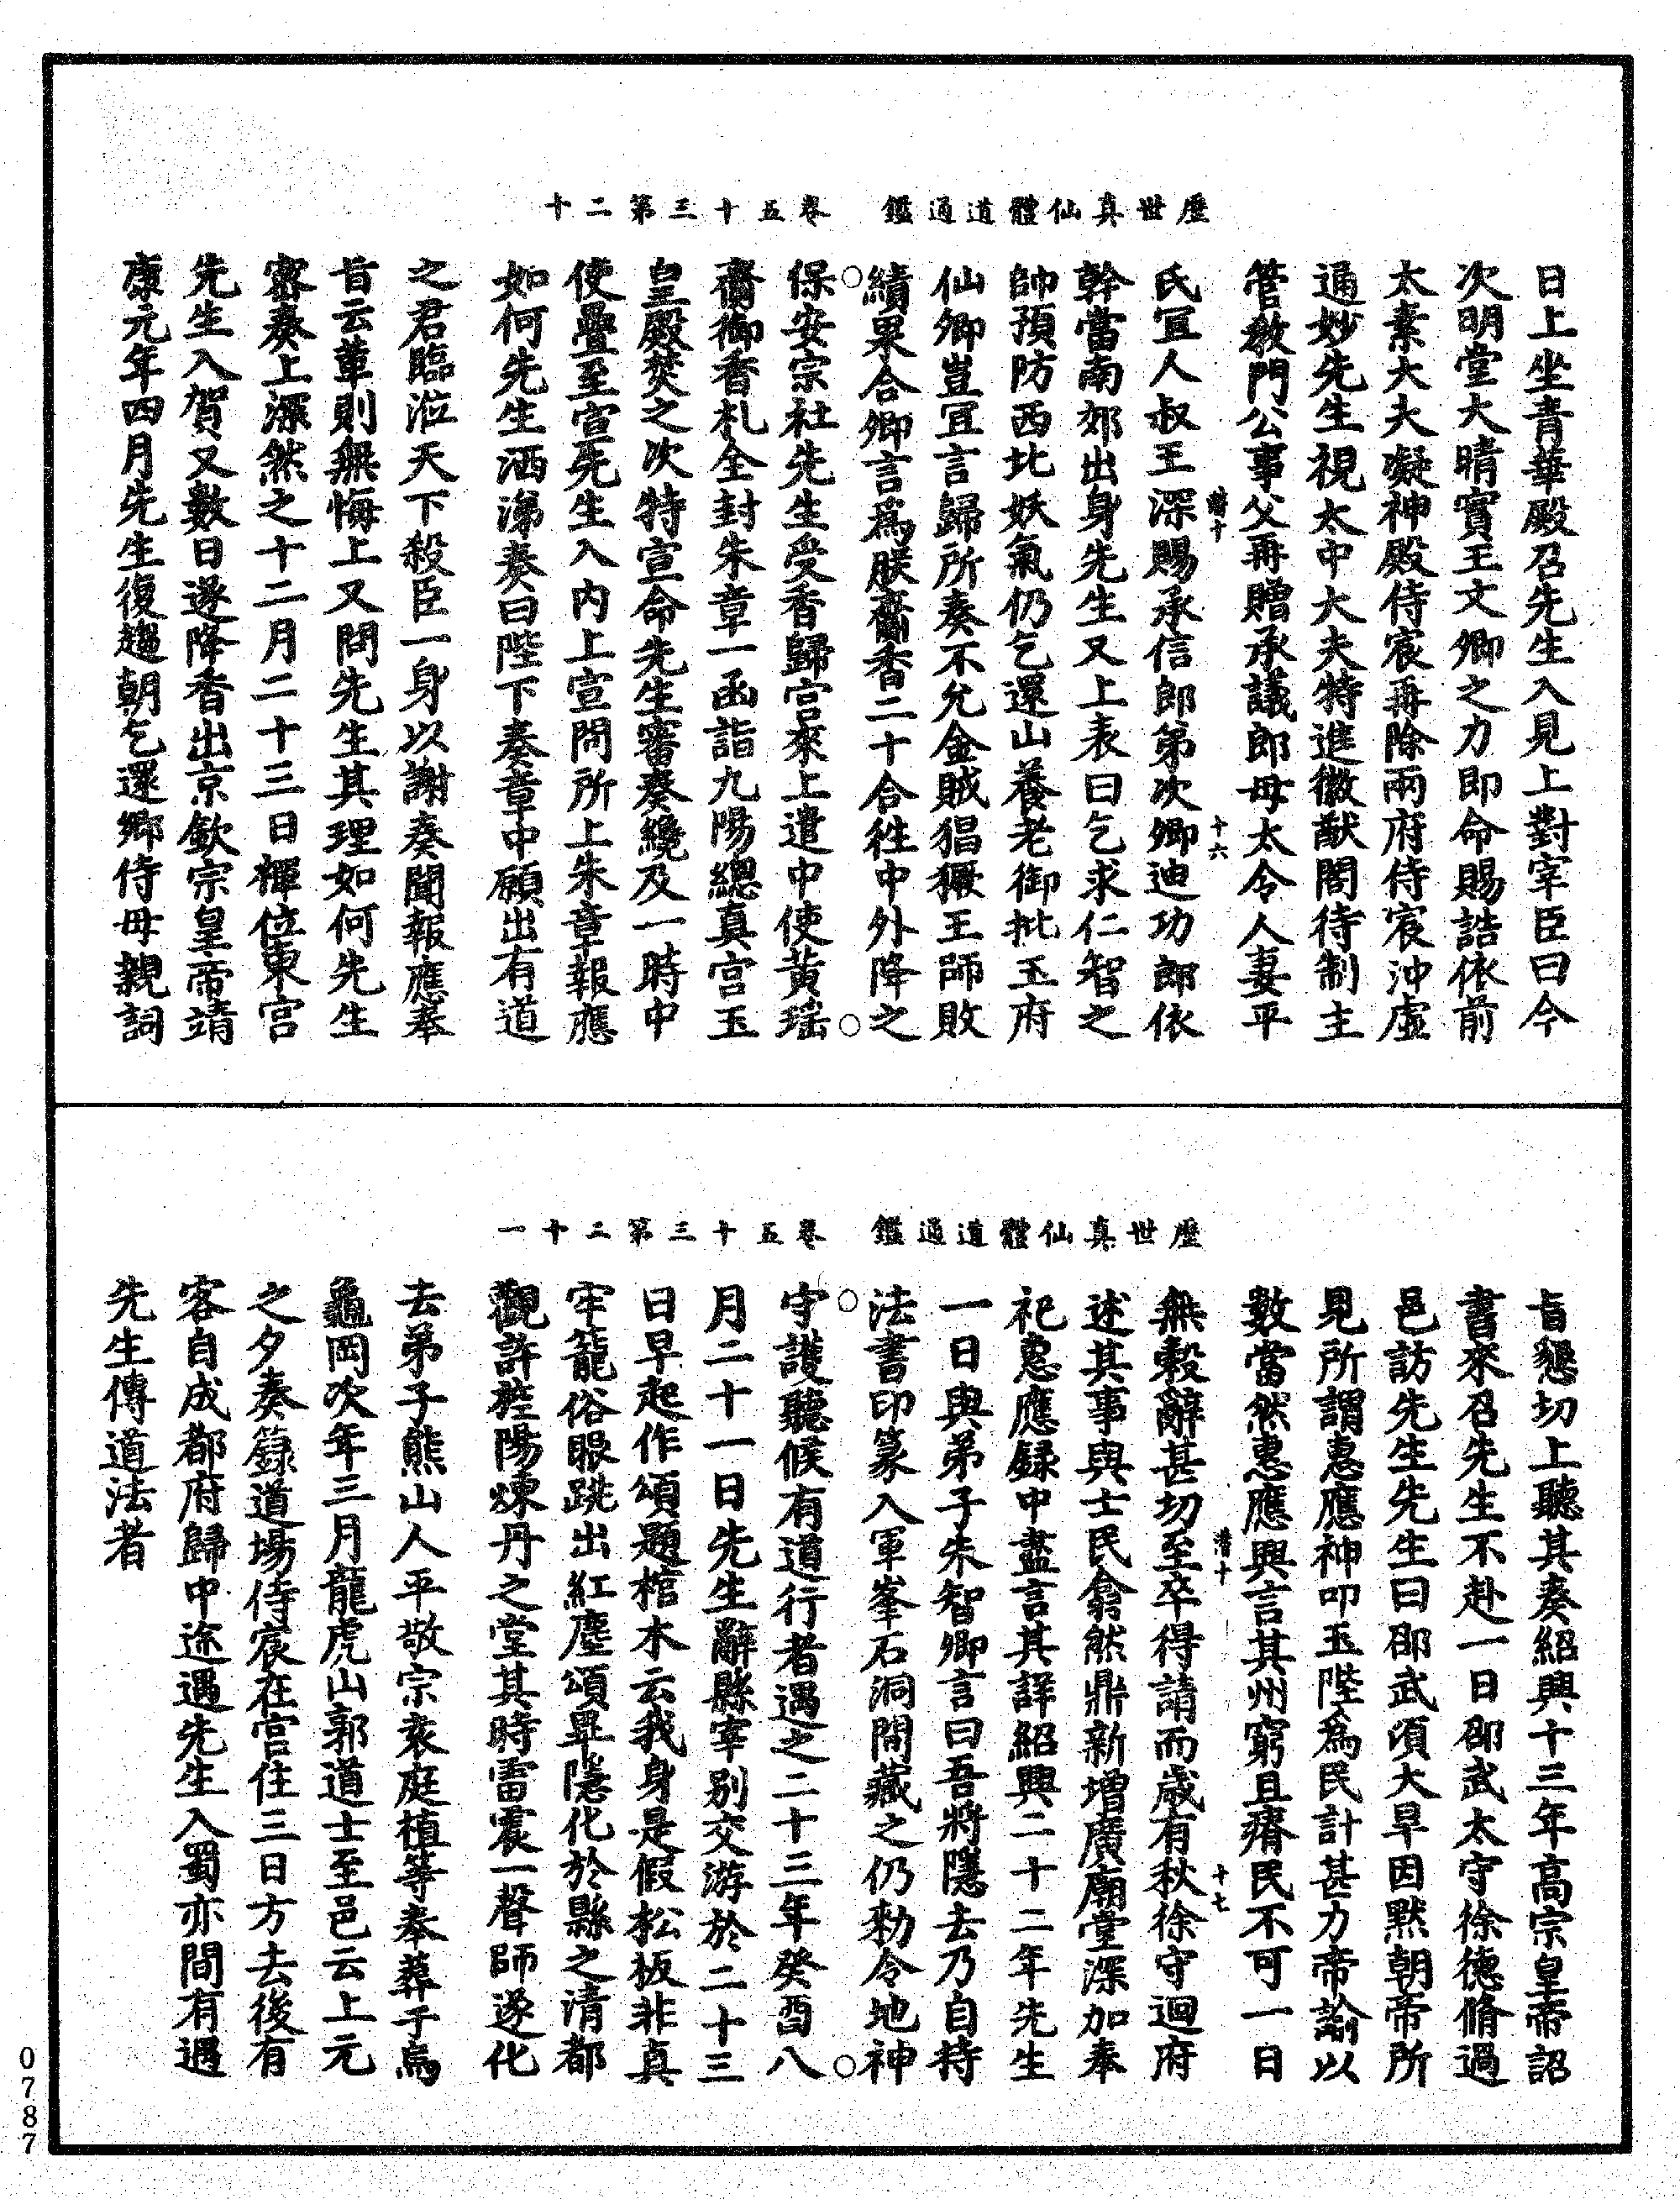 歷世真仙體道通鑑　卷五十三第二十
日上坐青華殿召先生入見上對宰臣曰今
次明堂大晴實王文卿之力即命賜誥依前
太素大夫凝神殿侍宸再除兩府侍宸沖虛
通妙先生視太中大夫特進徽猷閣待制主
管教門公事父再贈承議郎母太令人妻平
十六
氏宜人叔王深賜承信郎第次卿迪功郎依
幹當南郊出身先生又上表曰乞求仁智之
帥預防西北妖氣仍乞還山養老御批玉府
仙卿豈宜言歸所奏不允金賊猖獗王師敗
績果合卿言為朕齋香二十合往中外降之
保安宗社先生受香歸宫來上遣中使黄瑶
齋御香札全封朱章一函詣九陽總真宫玉
皇殿焚之次特宣命先生審奏纔及一時中
使疊至宣先生入内上宣問所上朱章報應
如何先生洒涕奏曰陛下奏章中願出有道
之君臨涖天下殺臣一身以謝奏聞報應奉
旨云革則無悔上又問先生其理如何先生
密奏上深然之十二月二十三日禪位東宫
先生入賀又數日遂降香出京欽宗皇帝靖
康元年四月先生復趨朝乞還鄉侍母親詞
歷世真仙體道通鑑　卷五十三第二十一
旨懇切上聽其奏紹興十三年高宗皇帝詔
書來召先生不赴一日邵武太守徐德脩過
邑訪先生先生曰邵武頃大旱因黙朝帝所
見所謂惠應神叩玉陛為民計甚力帝諭以
數當然惠應興言其州窮且瘠民不可一日
十七
無穀辭甚切至卒得請而歲有秋徐守迴府
述其事與士民翕然鼎新增廣廟堂深加奉
祀惠應録中盡言其詳紹興二十二年先生
一日與弟子朱智卿言曰吾將隱去乃自持
法書印篆入軍峯石洞間藏之仍勑令地神
守護聽候有道行者遇之二十三年癸酉八
月二十一日先生辭縣宰别交游於二十三
日早起作頌題棺木云我身是假松板非真
牢籠俗眼跳出紅塵頌畢隱化於縣之清都
觀許旌陽煉丹之堂其時雷震一聲師遂化
去弟子熊山人平敬宗袁庭植等奉葬于烏
龜岡次年三月龍虎山郭道士至邑云上元
之夕奏籙道場侍宸在宫住三日方去後有
客自成都府歸中途遇先生入蜀亦間有遇
先生傳道法者
0787